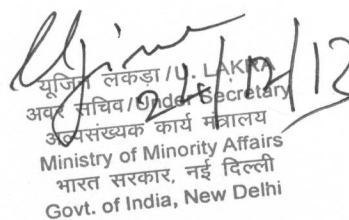 24/12/13
यूजिन लकड़ा / U. LAKRA
अवर सचिव / Under Secretary
अल्पसंख्यक कार्य मंत्रालय
Ministry of Minority Affairs
भारत सरकार, नई दिल्ली
Govt. of India, New Delhi